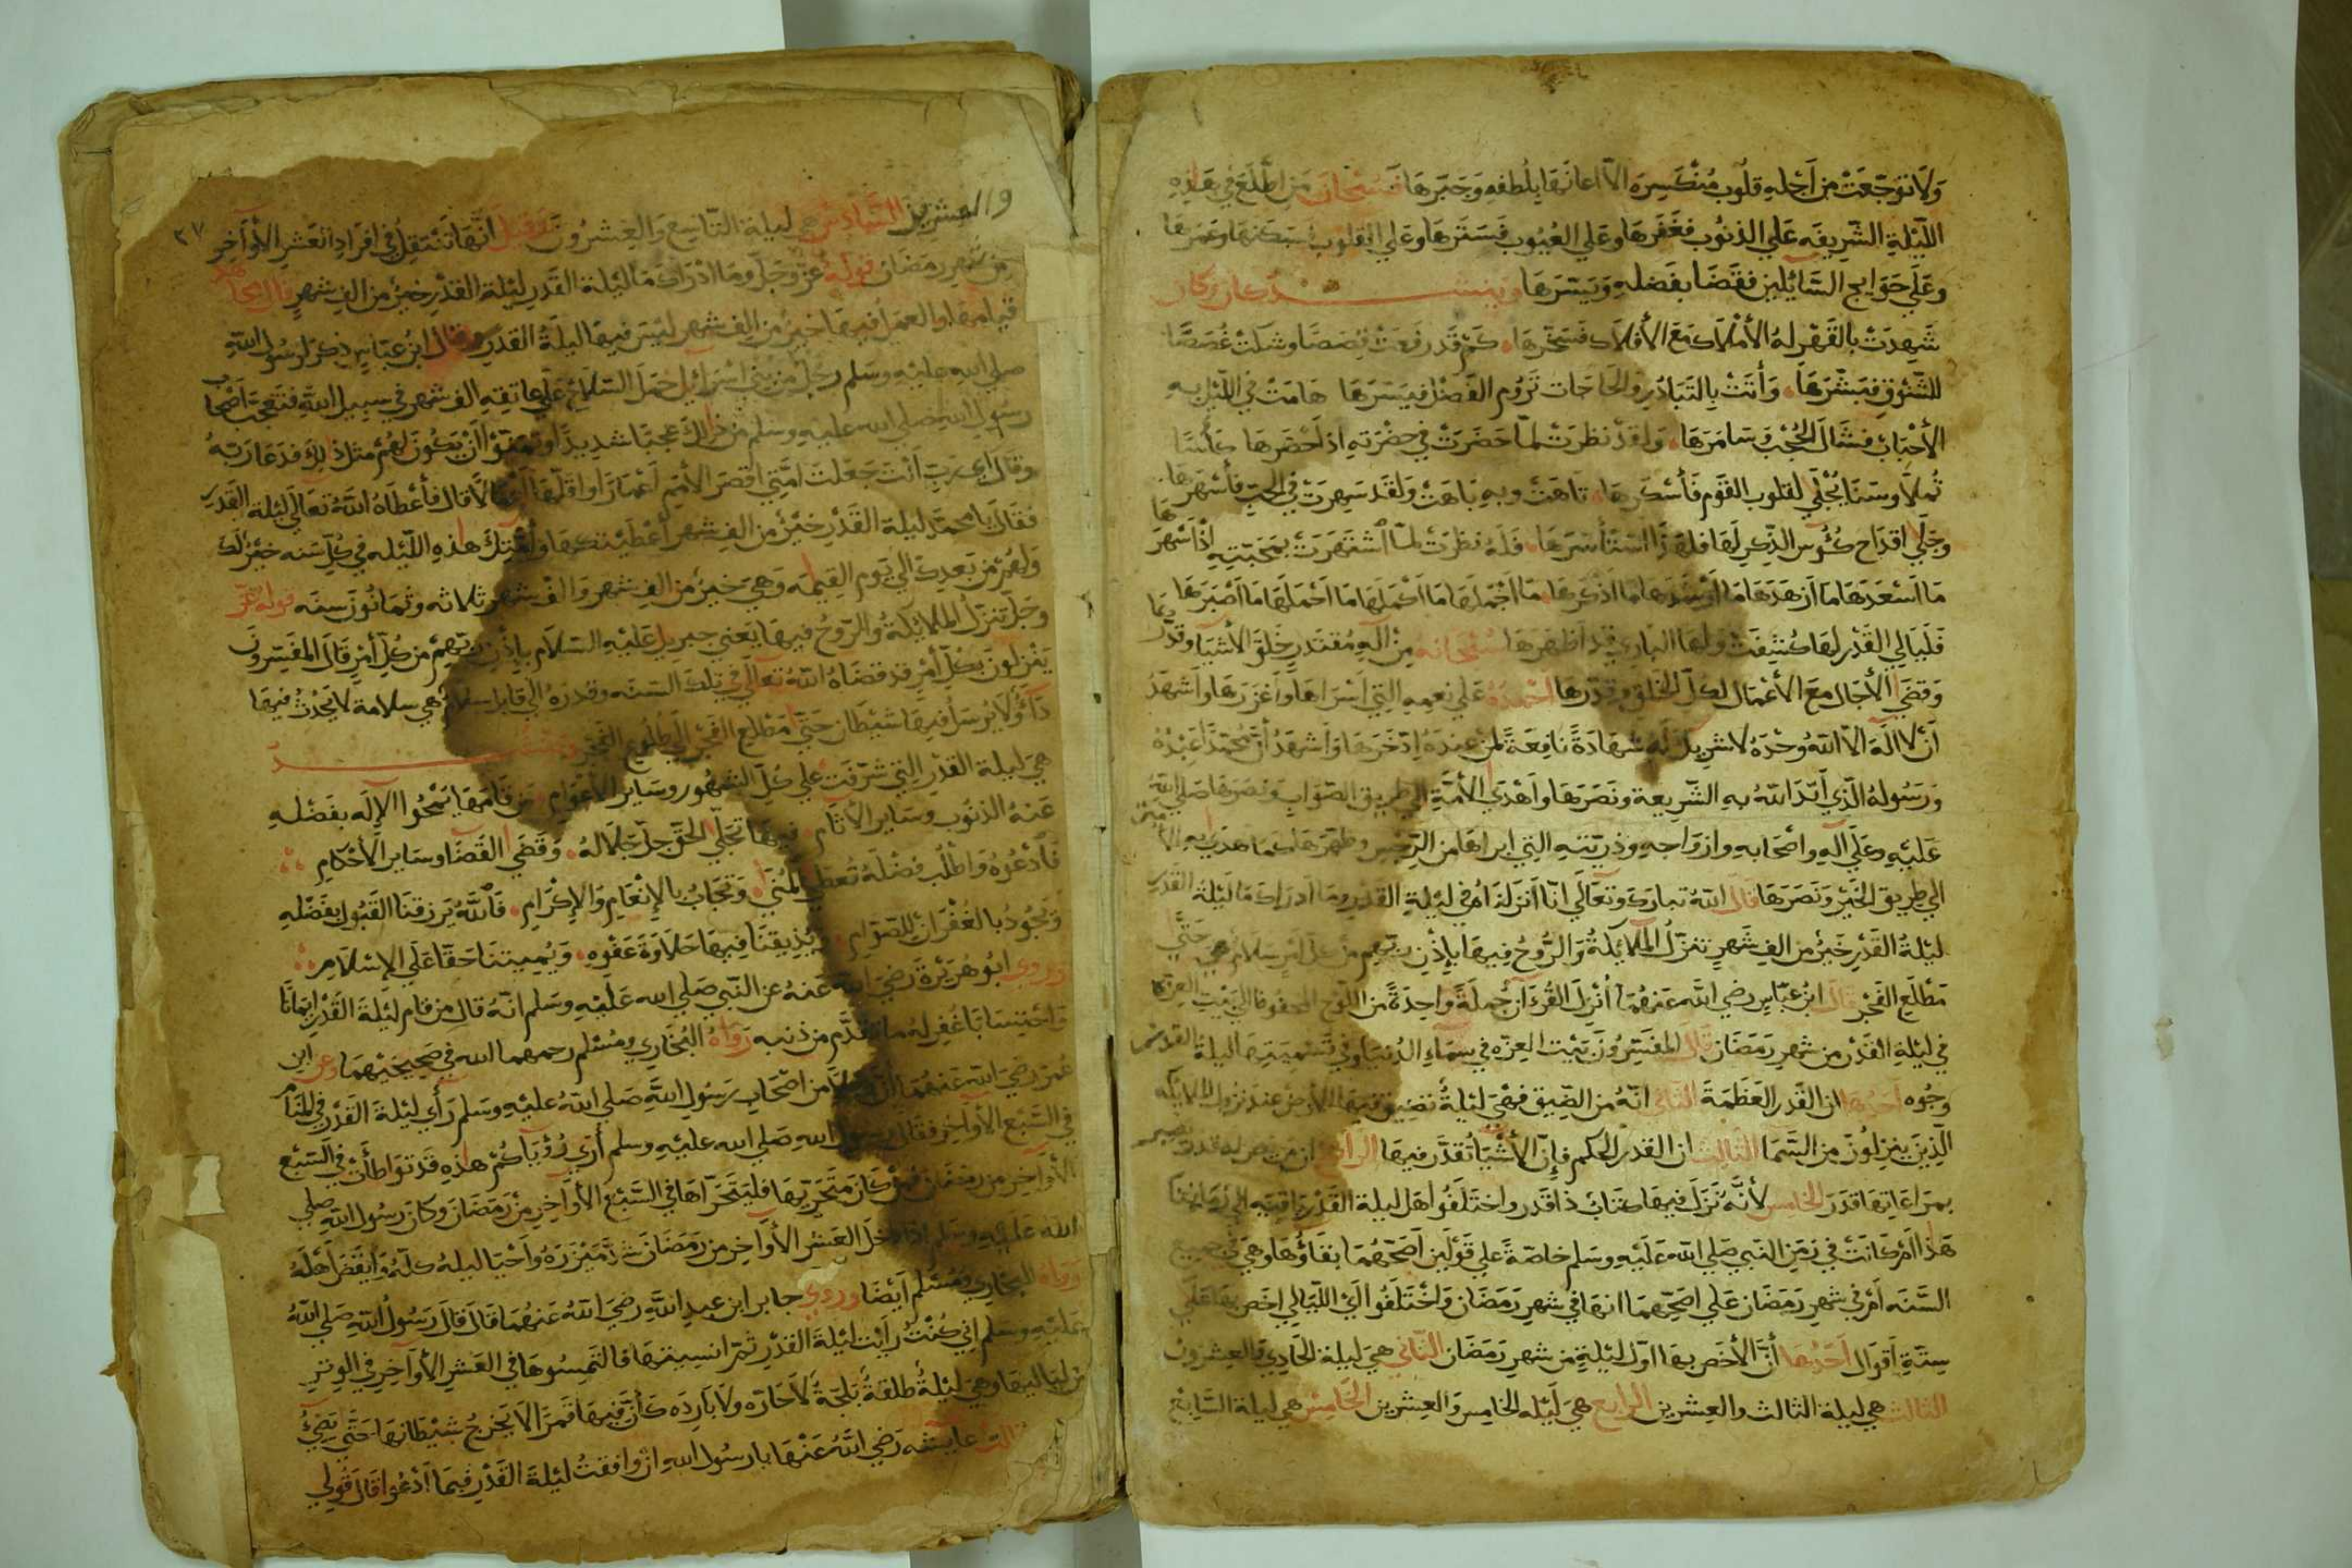 ولا توجعت من اجله قلوب منكسره الا اعانها بلطفه وجبرها فسبحان من اطلع في هذه
الليلة الشريفه علي الذنوب فغفرها وعلي العيوب فسترها وعلي القلوب فسكنها وعمرها
وعلي حوايج السايلين فقضا بفضله ويسرها وينشد كان وكان
شهدت بالقهر له الأملاك مع الأفلاك فسخرها كم قد رفعت قصصا وشكت غصصا
للشوق فبشرها وأتت بالتبادر والحاجات تروم الفضل فيسرها هامت في الليل به
الأحباب فشال الحجب وسامرها ولقد نظرت لما حضرت في حضرته اذ احضرها كأسا
ثملا وسنا يجلي لقلوب القوم فأسكرها تاهت وبه باهت ولقد سهرت في الحب فأسهرها
وجلي اقداح كئوس الذكر لها فلهذا استأسرها فله نظرت لما اشتهرت بمحبته اذ اشهرها
ما اسعدها ما ازهدها ما ارشدها ما اذكرها ما اجملها ما اكملها ما احملها ما اصبرها
فليالي القدر لها كشفت ولها الباري قد اظهرها سبحانه من اله مقتدر خلق الأشيا وقدرها
وقضي الأجال مع الأعمال لكل الخلق وقدرها احمده علي نعمه التي اسراها واغزرها واشهد
أن لا اله الا الله وحده لا شريك له شهادة نافعة لمن عنده ادخرها واشهد أن محمدا عبده
ورسوله الذي ايد الله به الشريعة ونصرها واهدي الأمة الي طريق الصواب ونصرها صلي الله
عليه وعلي اله واصحابه وازواجه وذريته التي ابراها من الرجس وطهرها كما هدي به الامة
الي طريق الخير ونصرها قال الله تبارك وتعالي انا انزلناه في ليلة القدر وما ادراك ما ليلة القدر
ليلة القدر خير من الف شهر تنزل الملائكة والروح فيها بإذن ربهم من كل امر سلام هي حتي
مطلع الفجر قال ابن عباس رضي الله عنهما أنزل القرءان جملة واحدة من اللوح المحفوظ الي بيت العزة
في ليلة القدر من شهر رمضان قال المفسرون بيت العزه في سماء الدنيا وفي تسميتها ليلة القدر خمس
وجوه احدها ان القدر العظمة الثاني انه من الضيق فهي ليلة تضيق فيها الارض عند نزول الملايكه
الذين ينزلون من السما الثالث ان القدر الحكم فإن الأشيا تقدر فيها الرابع ان من لم يكن له قدر يصير
بمراعاتها قدر الخامس لأنه نزل فيها كتاب ذا قدر واختلفوا هل ليلة القدر باقيه الي زماننا
هذا ام كانت في زمن النبي صلي الله عليه وسلم خاصة علي قولين اصحهما بقاؤها وهي في جميع
السنه ام في شهر رمضان علي اصحهما انها في شهر رمضان واختلفوا اي الليالي اخص بها علي
ستة اقوال احدها أن الأخص بها اول ليلة من شهر رمضان الثاني هي ليلة الحادي والعشرون
الثالث هي ليلة الثالث والعشرين الرابع هي ليله الخامس والعشرين الخامس هي ليلة السابع
٢٧
والعشرين السادس هي ليلة التاسع والعشرون وقيل انها تنتقل في افراد العشر الأواخر
من شهر رمضان قوله عز وجل وما ادراك ما ليلة القدر ليلة القدر خير من الف شهر قال مجاهد
قيامها والعمل فيها خير من الف شهر ليس فيها ليلة القدر وقال ابن عباس ذكر لرسول الله
صلي الله عليه وسلم رجل من بني اسرائيل حمل السلاح علي عاتقه الف شهر في سبيل الله فتعجب اصحاب
رسول الله صلي الله عليه وسلم من ذلك عجبا شديدا وتمنوا أن يكون لهم مثل ذلك فدعا ربه
وقال اي رب أنت جعلت امتي اقصر الأمم اعمارا واقلها اعمالا قال فأعطاه الله تعالي ليلة القدر
فقال يا محمد ليلة القدر خير من الف شهر أعطيتكها وأمتك هذه الليله في كل سنه خير لك
ولهم من بعدك الي يوم القيمه وهي خير من الف شهر والف شهر ثلاثه وثمانون سنه قوله عز
وجل تنزل الملائكة والروح فيها يعني جبريل عليه السلام بإذن ربهم من كل أمر قال المفسرون
ينزلون بكل أمر قد قضاه الله تعالي في تلك السنه وقدره الي قابل سلام هي سلامة لا يحدث فيها
داء ولا يرسل فيها شيطان حتي مطلع الفجر الي طلوع الفجر وينشد
هي ليلة القدر التي شرفت علي كل الشهور وساير الأعوام من قامها يمحوا الإله بفضله
عنه الذنوب وساير الأثام فيها تجلي الحق جل جلاله وقضي القضا وساير الأحكام
فأدعوه واطلب فضله تعطي المني وتجاب بالإنعام والإكرام فالله يرزقنا القبول بفضله
ويجود بالغفران للصوام ويذيقنا فيها حلاوة عفوه ويميتنا حقا علي الإسلام
وروي ابو هريرة رضي الله عنه عن النبي صلي الله عليه وسلم انه قال من قام ليلة القدر إيمانا
واحتسابا غفر له ما تقدم من ذنبه رواه البخاري ومسلم رحمهما الله في صحيحيهما وعن ابن
عمر رضي الله عنهما ان رجلا من اصحاب رسول الله صلي الله عليه وسلم رأي ليلة القدر في المنام
في السبع الأواخر فقال رسول الله صلي الله عليه وسلم أري رؤياكم هذه قد تواطأت في السبع
الأواخر من رمضان فمن كان متحريها فليتحراها في السبع الأواخر من رمضان وكان رسول الله صلي
الله عليه وسلم اذا دخل العشر الأواخر من رمضان شد ميزره واحيا ليله كله وايقض اهله
رواه البخاري ومسلم أيضا وروي جابر ابن عبد الله رضي الله عنهما قال قال رسول الله صلي الله
عليه وسلم اني كنت رأيت ليلة القدر ثم انسيتها فالتمسوها في العشر الأواخر في الوتر
من لياليها وهي ليلة طلقة بلجة لا حاره ولا بارده كأن فيها قمرا لا يخرج شيطانها حتي يضيء
قالت عايشه رضي الله عنها يا رسول الله ان وافقت ليلة القدر فيما أدعوا قال قولي